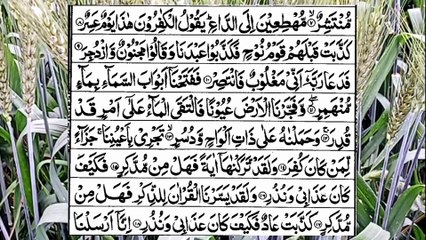 مُّنْتَشِرٌ ۙ﴿۷﴾ مُّهْطِعِيْنَ اِلَى الدَّاعِ ؕ يَقُوْلُ الْكٰفِرُوْنَ هٰذَا يَوْمٌ عَسِرٌ ﴿۸﴾
كَذَّبَتْ قَبْلَهُمْ قَوْمُ نُوْحٍ فَكَذَّبُوْا عَبْدَنَا وَقَالُوْا مَجْنُوْنٌ وَّازْدُجِرَ ﴿۹﴾
فَدَعَا رَبَّهٗۤ اَنِّيْ مَغْلُوْبٌ فَانْتَصِرْ ﴿۱۰﴾ فَفَتَحْنَاۤ اَبْوَابَ السَّمَآءِ بِمَآءٍ
مُّنْهَمِرٍ ﴿۱۱﴾ وَّفَجَّرْنَا الْاَرْضَ عُيُوْنًا فَالْتَقَى الْمَآءُ عَلٰۤى اَمْرٍ قَدْ
قُدِرَ ﴿۱۲﴾ وَحَمَلْنٰهُ عَلٰى ذَاتِ اَلْوَاحٍ وَّدُسُرٍ ﴿۱۳﴾ تَجْرِيْ بِاَعْيُنِنَا ۚ جَزَآءً
لِّمَنْ كَانَ كُفِرَ ﴿۱۴﴾ وَلَقَدْ تَّرَكْنٰهَاۤ اٰيَةً فَهَلْ مِنْ مُّدَّكِرٍ ﴿۱۵﴾ فَكَيْفَ
كَانَ عَذَابِيْ وَنُذُرِ ﴿۱۶﴾ وَلَقَدْ يَسَّرْنَا الْقُرْاٰنَ لِلذِّكْرِ فَهَلْ مِنْ
مُّدَّكِرٍ ﴿۱۷﴾ كَذَّبَتْ عَادٌ فَكَيْفَ كَانَ عَذَابِيْ وَنُذُرِ ﴿۱۸﴾ اِنَّاۤ اَرْسَلْنَا